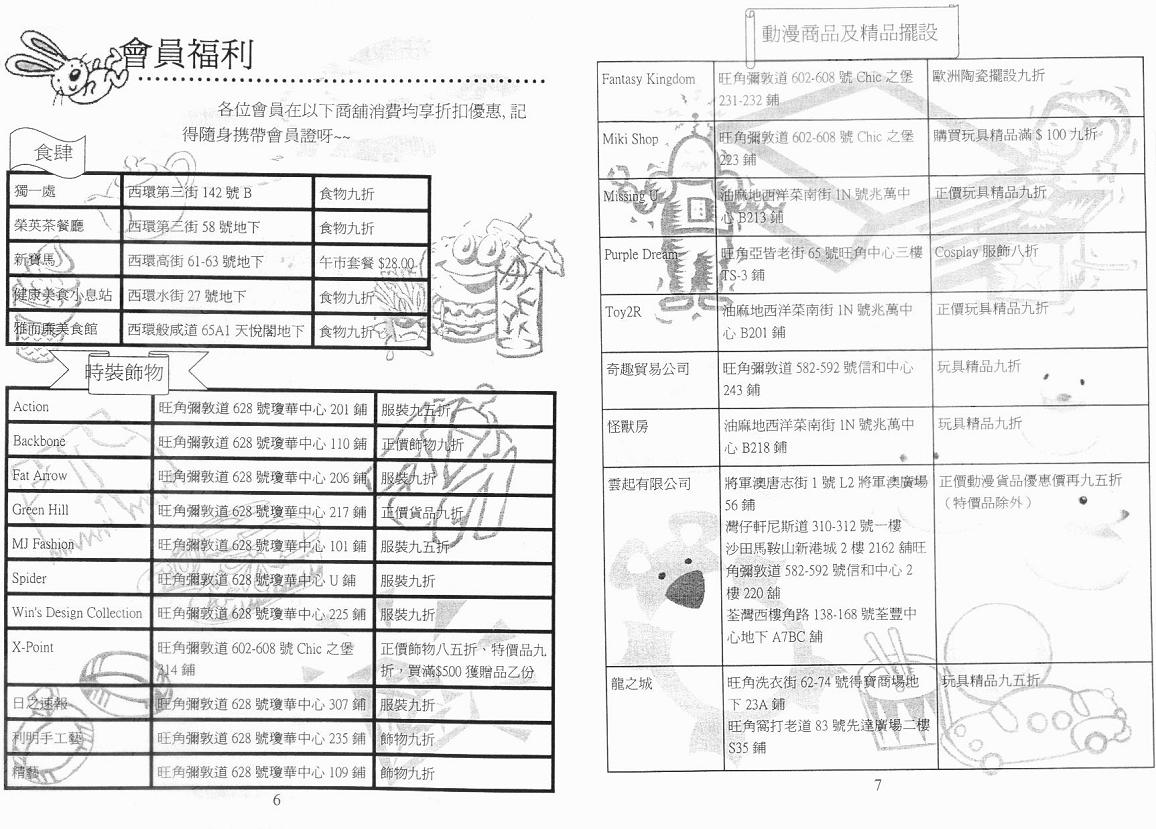 會員福利
各位會員在以下商舖消費均享折扣優惠, 記
得隨身携帶會員證呀~~
食肆
獨一處 西環第三街 142 號 B 食物九折
榮英茶餐廳 西環第三街 58 號地下 食物九折
新寶馬 西環高街 61-63 號地下 午市套餐 $28.00
健康美食小息站 西環水街 27 號地下 食物九折
雅而廉美食館 西環般咸道 65A1 天悅閣地下 食物九折
時裝飾物
Action 旺角彌敦道 628 號瓊華中心 201 鋪 服裝九五折
Backbone 旺角彌敦道 628 號瓊華中心 110 鋪 正價飾物九折
Fat Arrow 旺角彌敦道 628 號瓊華中心 206 鋪 服裝九折
Green Hill 旺角彌敦道 628 號瓊華中心 217 鋪 正價貨品九折
MJ Fashion 旺角彌敦道 628 號瓊華中心 101 鋪 服裝九五折
Spider 旺角彌敦道 628 號瓊華中心 U 鋪 服裝九折
Win's Design Collection 旺角彌敦道 628 號瓊華中心 225 鋪 服裝九折
X-Point 旺角彌敦道 602-608 號 Chic 之堡 正價飾物八五折、特價品九
314 鋪 折，買滿$500 獲贈品乙份
日之速報 旺角彌敦道 628 號瓊華中心 307 鋪 服裝九折
利明手工藝 旺角彌敦道 628 號瓊華中心 235 鋪 飾物九折
精藝 旺角彌敦道 628 號瓊華中心 109 鋪 飾物九折
6
動漫商品及精品擺設
Fantasy Kingdom 旺角彌敦道 602-608 號 Chic 之堡 歐洲陶瓷擺設九折
231-232 鋪
Miki Shop 旺角彌敦道 602-608 號 Chic 之堡 購買玩具精品滿 $ 100 九折
223 鋪
Missing U 油麻地西洋菜南街 1N 號兆萬中 正價玩具精品九折
心 B213 鋪
Purple Dream 旺角亞皆老街 65 號旺角中心三樓 Cosplay 服飾八折
TS-3 鋪
Toy2R 油麻地西洋菜南街 1N 號兆萬中 正價玩具精品九折
心 B201 鋪
奇趣貿易公司 旺角彌敦道 582-592 號信和中心 玩具精品九折
243 鋪
怪獸房 油麻地西洋菜南街 1N 號兆萬中 玩具精品九折
心 B218 鋪
雲起有限公司 將軍澳唐志街 1 號 L2 將軍澳廣場 正價動漫貨品優惠價再九五折
56 鋪 （特價品除外）
灣仔軒尼斯道 310-312 號一樓
沙田馬鞍山新港城 2 樓 2162 舖旺
角彌敦道 582-592 號信和中心 2
樓 220 舖
荃灣西樓角路 138-168 號荃豐中
心地下 A7BC 舖
龍之城 旺角洗衣街 62-74 號得寶商場地 玩具精品九五折
下 23A 鋪
旺角窩打老道 83 號先達廣場二樓
S35 鋪
7